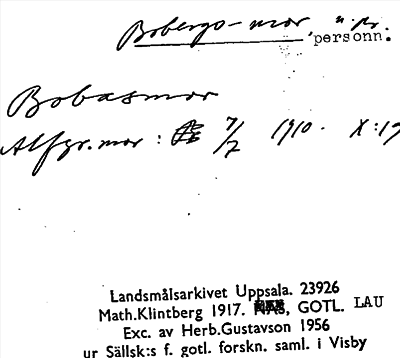 Bobergs-mor
personn.
Bobasmor
Alfgr.mor: 7/7 1910. X:19
Landsmålsarkivet Uppsala. 23926
Math.Klintberg 1917. GOTL. LAU
Exc. av Herb.Gustavson 1956
ur Sällsk:s f. gotl. forskn. saml. i Visby